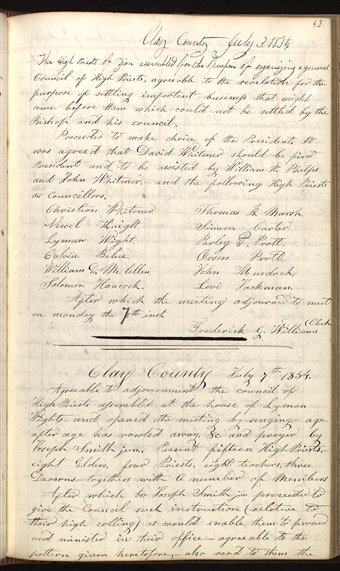 43
Clay County July 3. 1834
The High Priests of Zion assembled for the Purpose of organizing a general
Council of High Priests, agreeable to the revelation for the
purpose of settling important business that might
come before them which could not be settled by the
Bishop and his council.
Proceeded to make choice of the Presidents It
was agreed that David Whitmer should be first
President and to be assisted by William W. Phelps
and John Whitmer. and the following High Priests
as Councillors.
Christian Whitmer Thomas B. Marsh.
Newel Knight. Simeon Carter.
Lyman Wight. Parley P. Pratt.
Calvin Bebee. Orson Pratt.
William E. Mc Lellin John Murdock
Solomon Hancock. Levi Jackman.
After which the meeting adjourned to meet
on monday the 7th inst
Frederick G. Williams Clerk
Clay County July 7th 1834.
Agreeable to adjournment the council of
High Priests assembled at the house of Lyman
Wights and opened the meeting by singing, age
after age has rowled away, &c. and prayer by
Joseph Smith jun. Present fifteen High Priests,
eight Elders, four Priests, eight teachers, three
Deacons together with a number of members
After which br Joseph Smith jr proceeded to
give the Council such instruction (relative to
their high calling) as would enable them to proceed
and minister in their office agreeable to the
pattern given heretofore, also read to them the